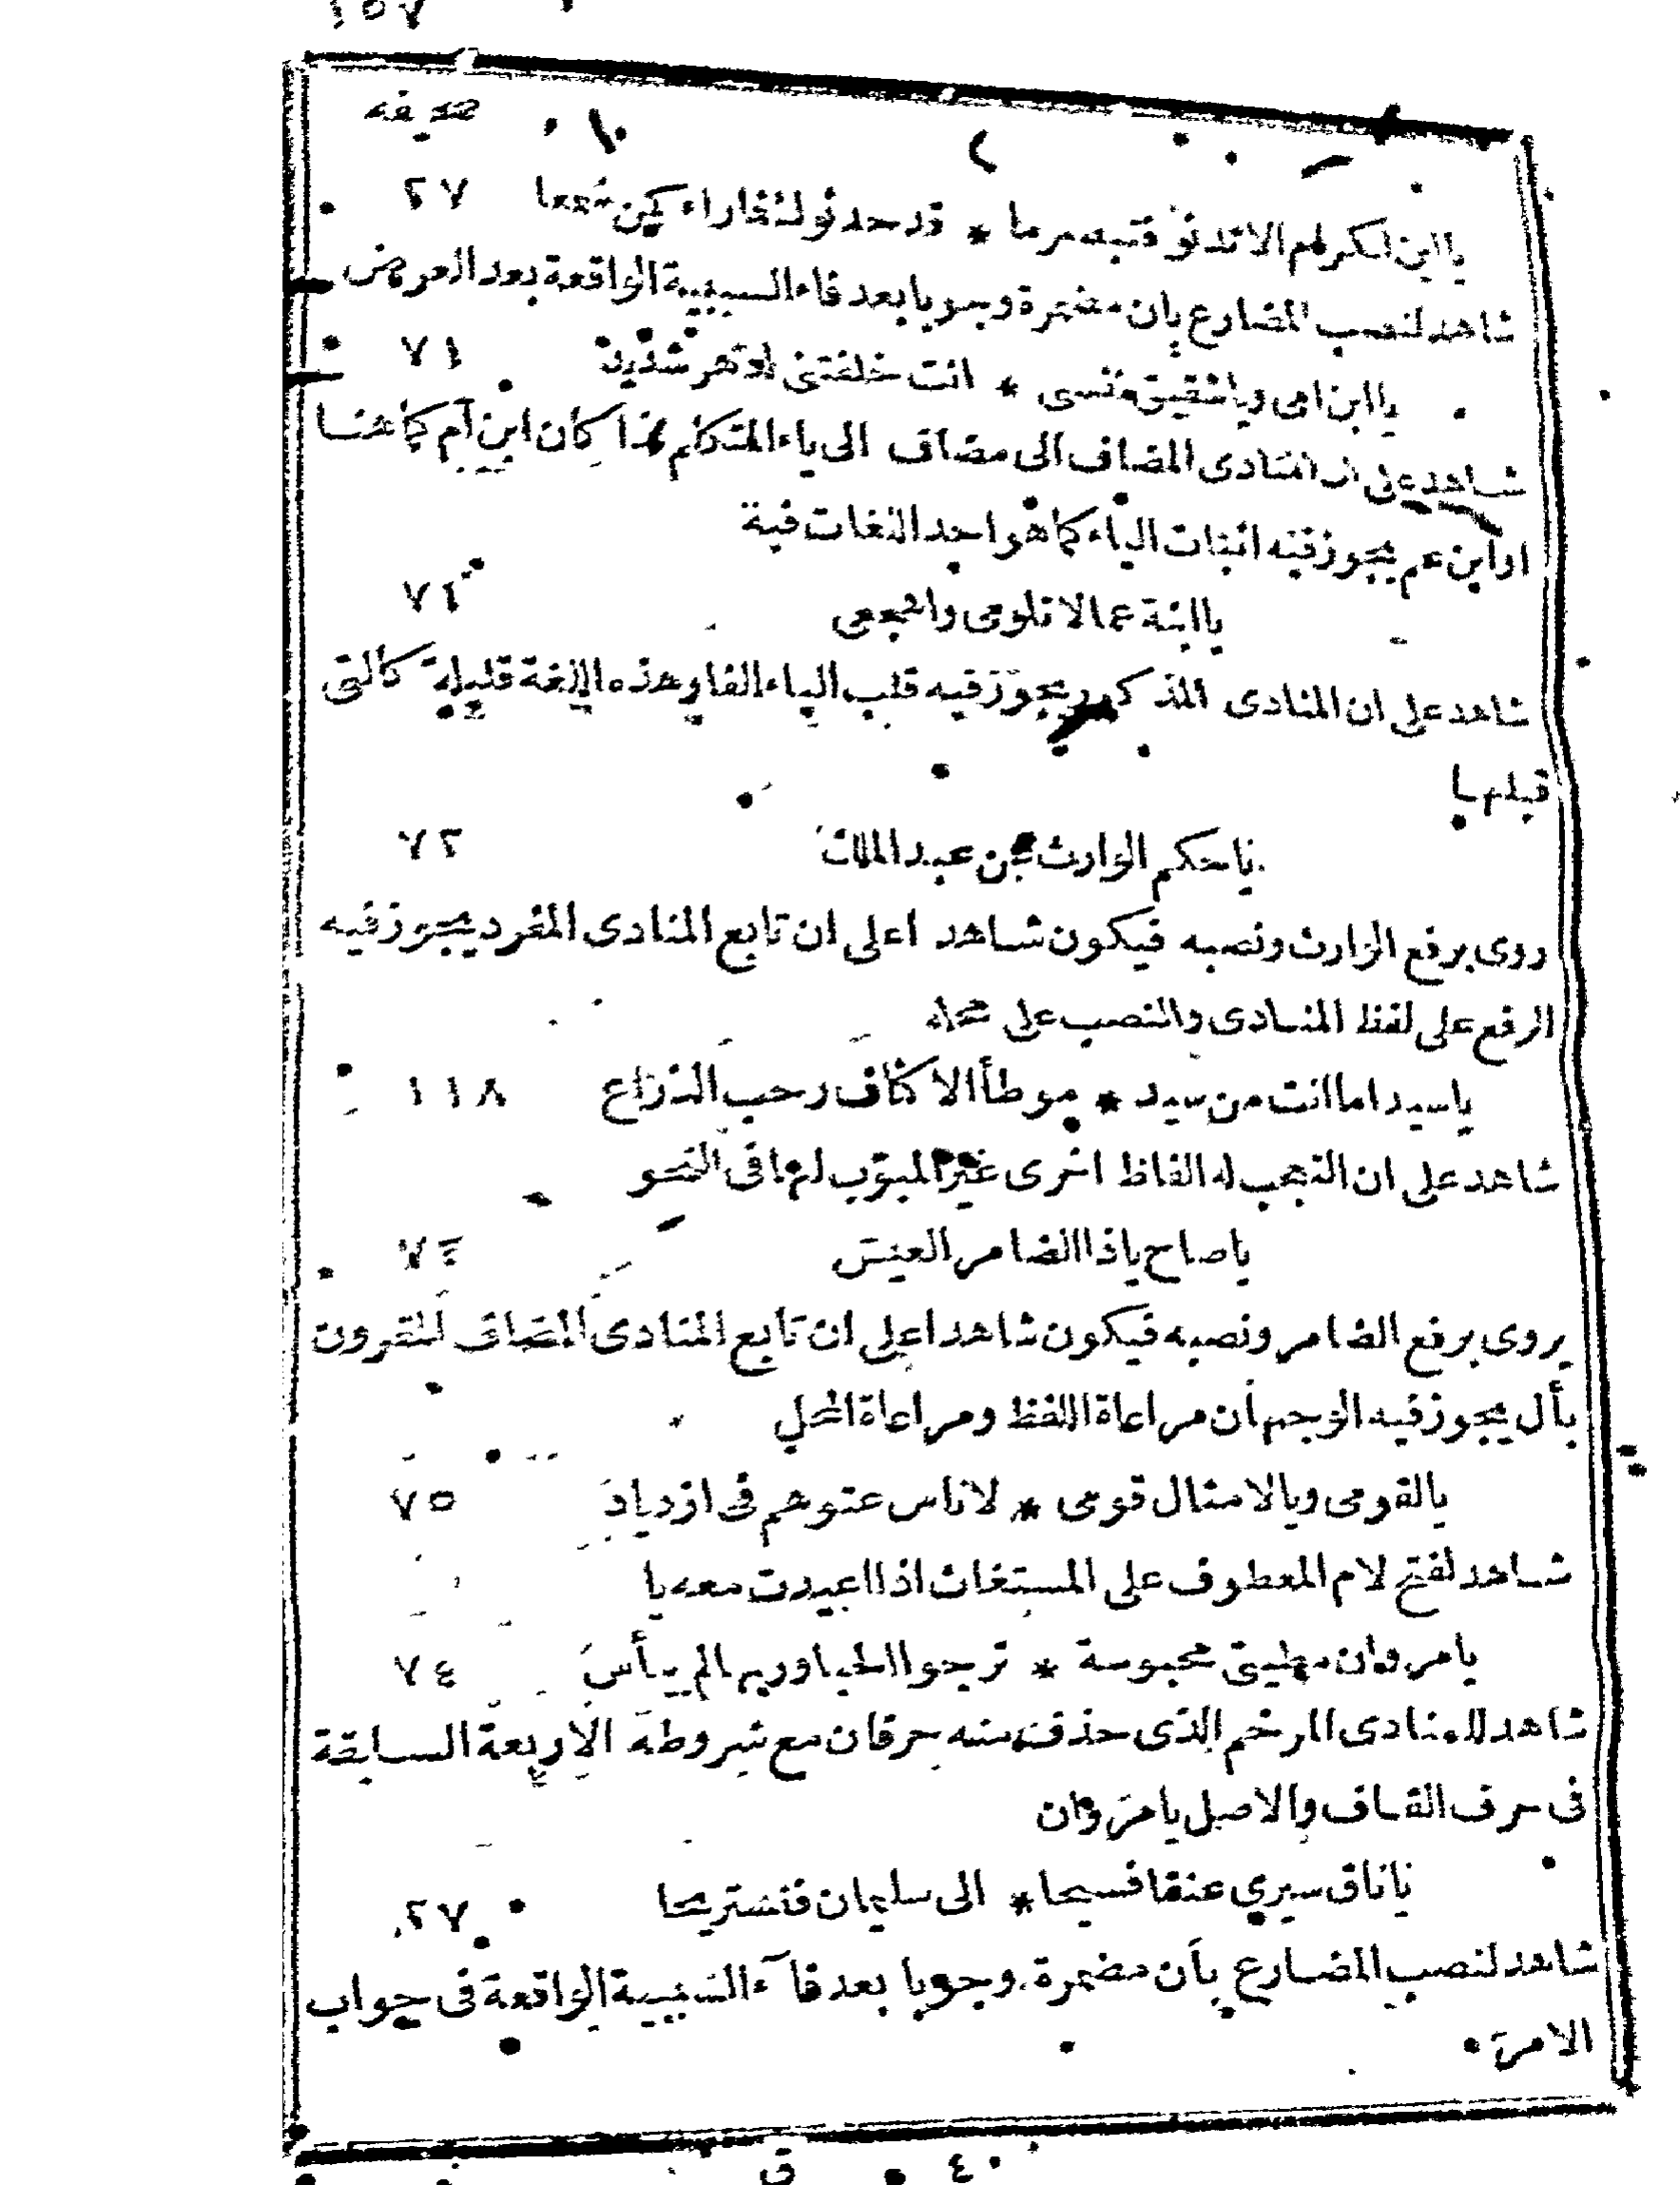 ١٥٧
صحيفه
يا ابن الكرام الا تدنو فتبصر ما * قد حدثوك فما راء كمن سمعا ٢٧
شاهد لنصب المضارع بان مضمرة وجوبا بعد فاء السببية الواقعة بعد العرض
يا ابن امى ويا شقيق نفسى * انت خلفتنى لدهر شديد ٧١
شاهد على ان المنادى المضاف الى مضاف الى ياء المتكلم اذا كان ابن أم كما هنا
او ابن عم يجوز فيه اثبات الياء كما هو احد اللغات فيه
يا ابنة عما لا تلومى واهجعى ٧١
شاهد على ان المنادى المذكور يجوز فيه قلب الياء الفا وهذه اللغة قليلة كالتى
قبلها
يا حكم الوارث عن عبد الملك ٧٢
روى برفع الوارث ونصبه فيكون شاهد ا على ان تابع المنادى المفرد يجوز فيه
الرفع على لفظ المنادى والنصب على محله
يا سيدا ما انت من سيد * موطأ الاكناف رحب الذراع ١١٨
شاهد على ان التعجب له الفاظ اخرى غير المبوب لها فى النحو
يا صاح يا ذا الضامر العنس ٧٤
يروى برفع الضامر ونصبه فيكون شاهدا على ان تابع المنادى المضاف المقرون
بأل يجوز فيه الوجهان مراعاة اللفظ ومراعاة المحل
يا لقومى ويا لامثال قومى * لاناس عتوهم فى ازدياد ٧٥
شاهد لفتح لام المعطوف على المستغاث اذا اعيدت معه يا
يا مرو ان مطيتى محبوسة * ترجوا الحبا وربها لم ييأس ٧٤
شاهد للمنادى المرخم الذى حذف منه حرفان مع شروطه الاربعة السابقة
فى حرف القاف والاصل يا مروان
يا ناق سيرى عنقا فسيحا * الى سليمان فنستريحا ٢٧
شاهد لنصب المضارع بأن مضمرة وجوبا بعد فآء السببية الواقعة فى جواب
الامر
٤٠ ق